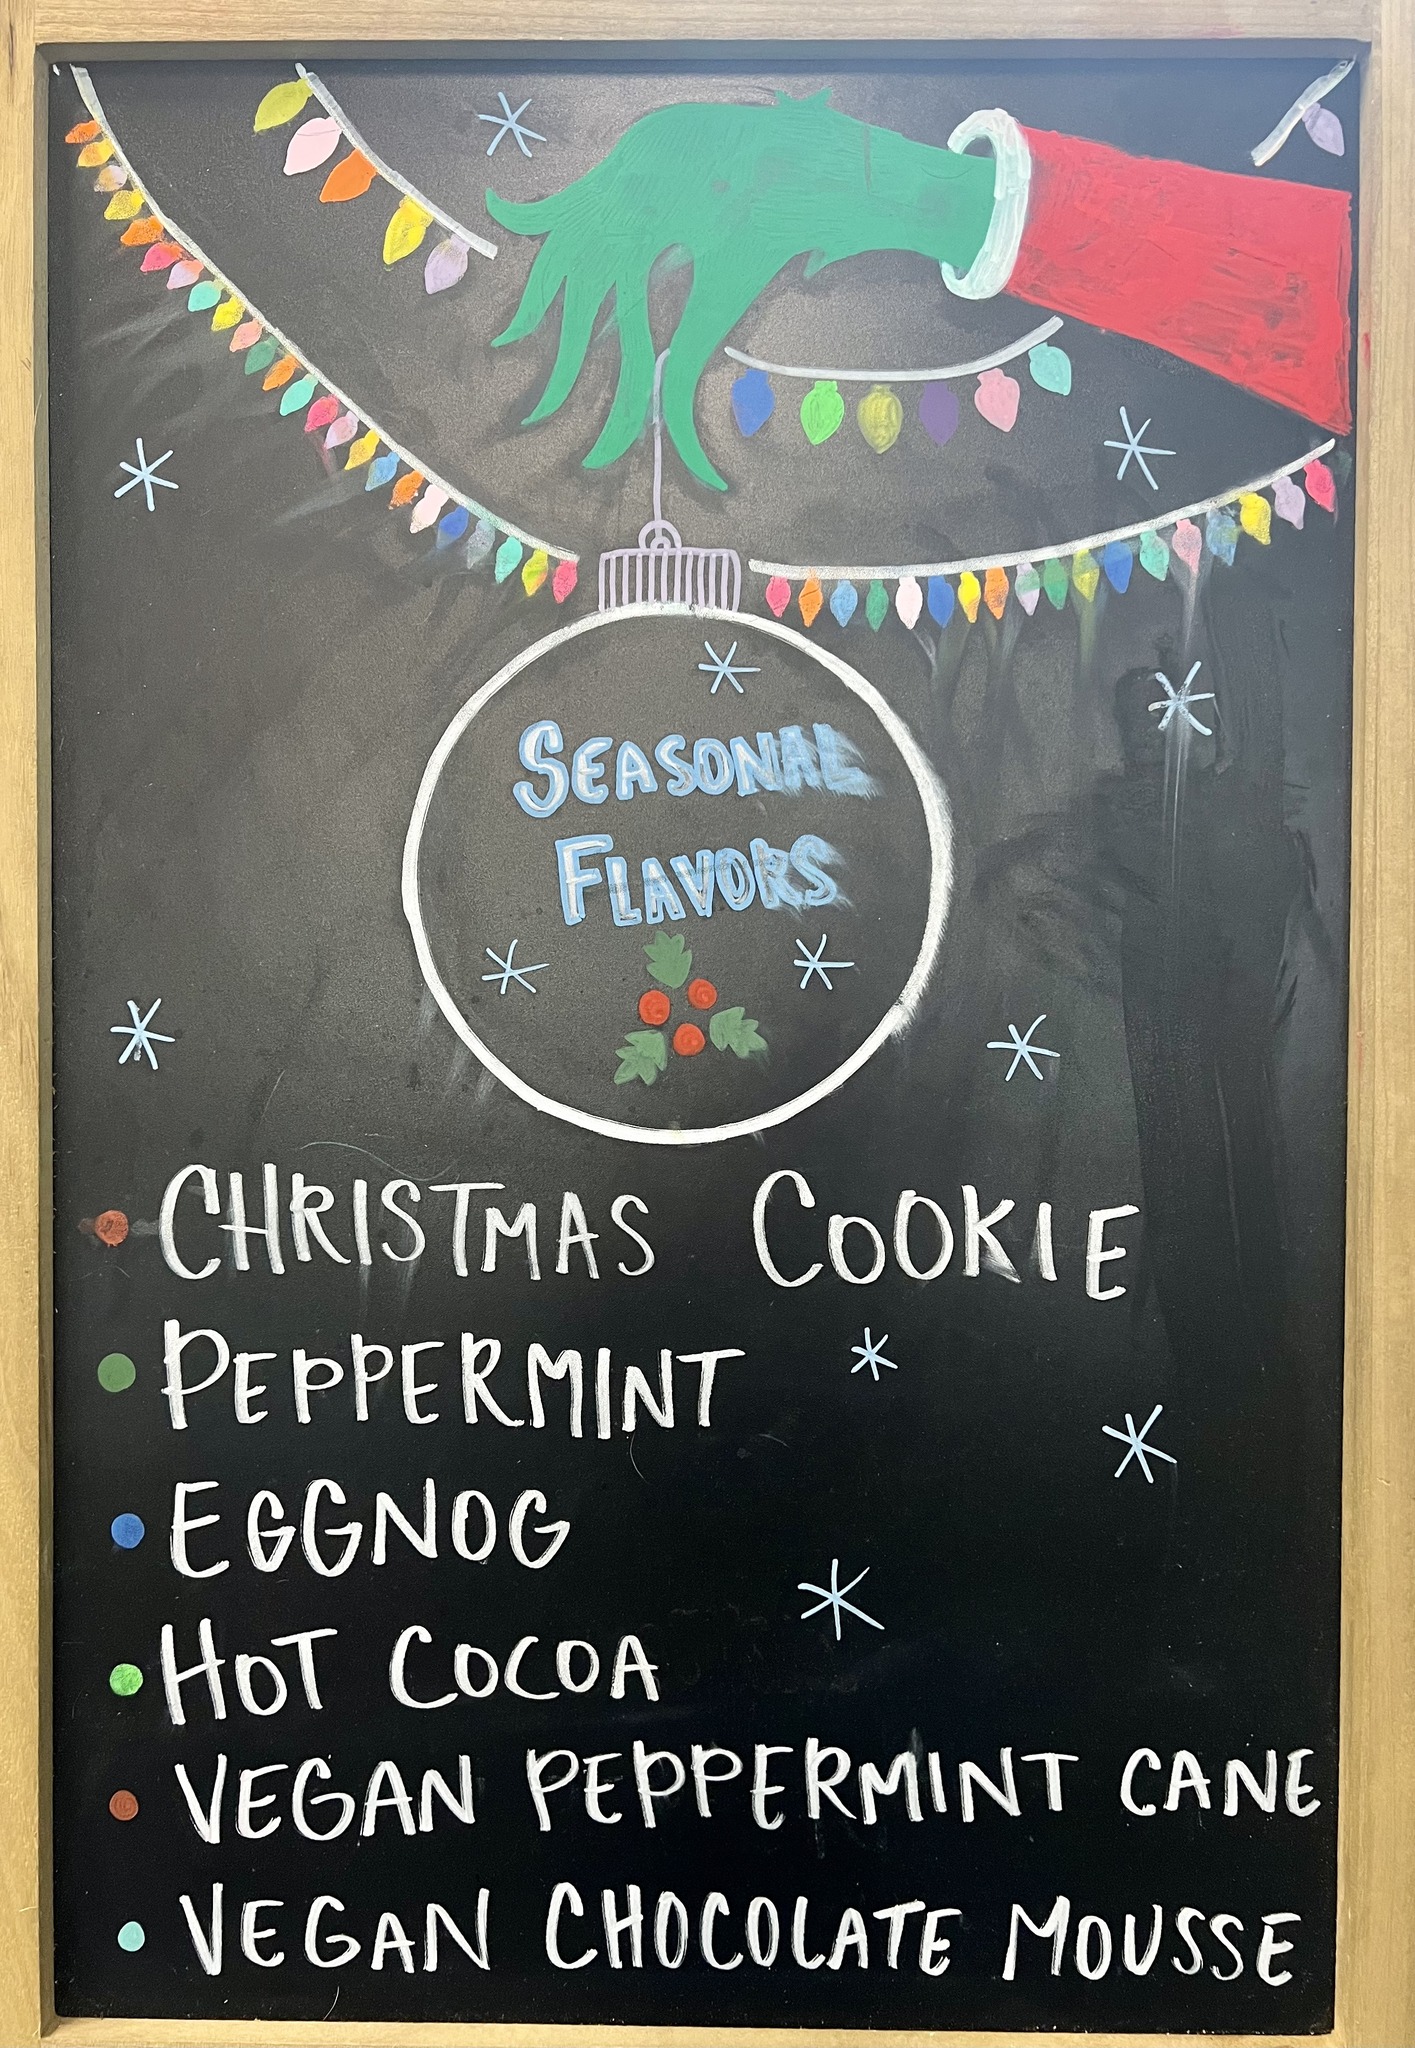 SEASONAL
FLAVORS
CHRISTMAS COOKIE
PEPPERMINT
EGGNOG
HOT COCOA
VEGAN PEPPERMINT CANE
VEGAN CHOCOLATE MOUSSE